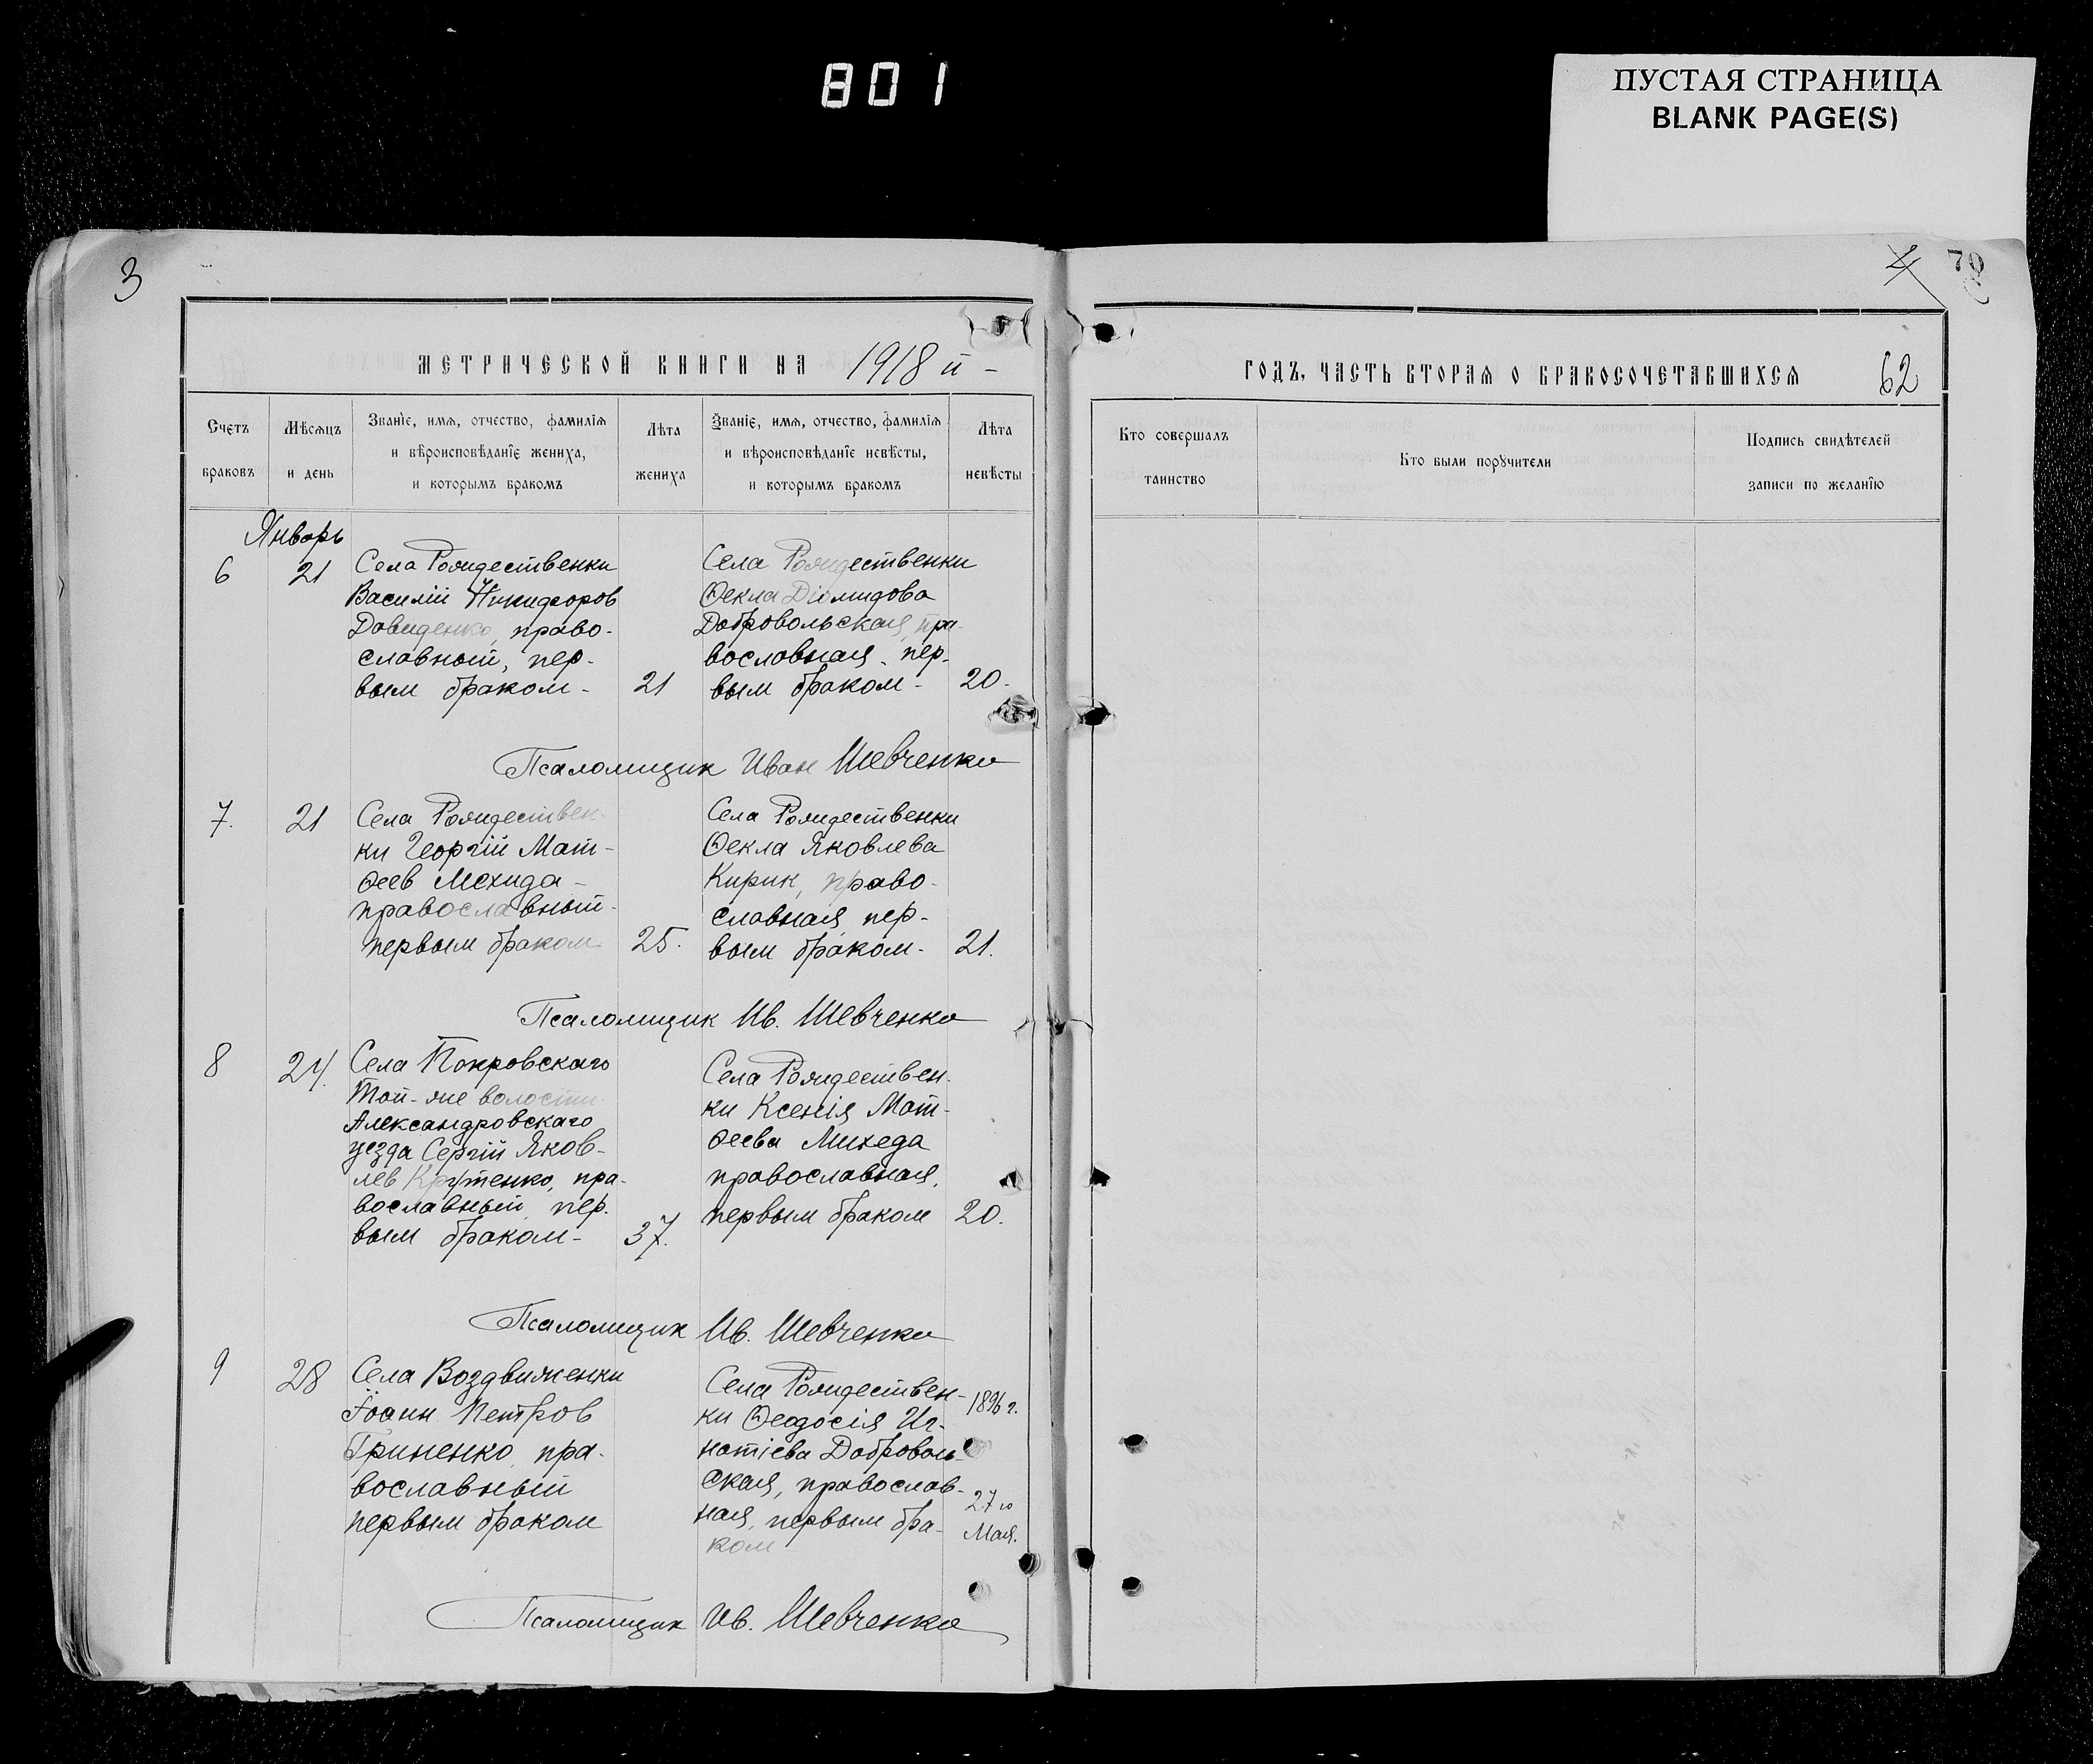 801
ПУСТАЯ СТРАНИЦА
BLANK PAGE(S)
3
4
70
МЕТРИЧЕСКОЙ КНИГИ НА 1918 й -
ГОДЪ, ЧАСТЬ ВТОРАЯ О БРАКОСОЧЕТАВШИХСЯ
62
Счетъ браковъ
Мѣсяцъ и день
Званіе, имя, отчество, фамилія
и вѣроисповѣданіе жениха,
и которымъ бракомъ
Лѣта жениха
Званіе, имя, отчество, фамилія
и вѣроисповѣданіе невѣсты,
и которымъ бракомъ
Лѣта невѣсты
Кто совершалъ
таинство
Кто были поручители
Подпись свидѣтелей
записи по желанію
Январь
6
21
Села Рождественки
Василій Никифоров
Давиденко, право-
славный, пер-
вым браком -
21
Села Рождественки
Ѳекла Діомидова
Добровольская, пра-
вославная, пер-
вым браком -
20.
Псаломщик Иван Шевченко
7.
21
Села Рождествен-
ки Георгій Мат-
ѳеев Мехида -
православный -
первым браком
25.
Села Рождественки
Ѳекла Яковлева
Кирик, право-
славная, пер-
вым браком -
21.
Псаломщик Ив. Шевченко
8
24.
Села Покровскаго
той-же волости
Александровскаго
уезда Сергій Яков-
лев Крутенко, пра-
вославный, пер-
вым браком -
37.
Села Рождествен-
ки Ксенія Мат-
ѳеева Михеда
православная,
первым браком
20.
Псаломщик Ив. Шевченко
9
28
Села Воздвиженки
Іоанн Петров
Гриненко, пра-
вославный
первым браком
Села Рождествен-
ки Ѳеодосія Иг-
натіева Доброволь-
ская, православ-
ная, первым бра-
ком
1896 г.
27 го
Мая.
Псаломщик Ив. Шевченко